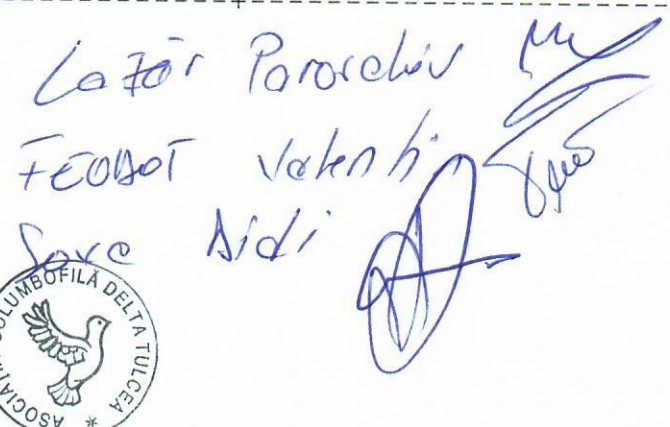 Lazăr Paraschiv
FEODOT Valentin
Sava Didi
ASOCIAȚIA COLUMBOFILĂ DELTA TULCEA *